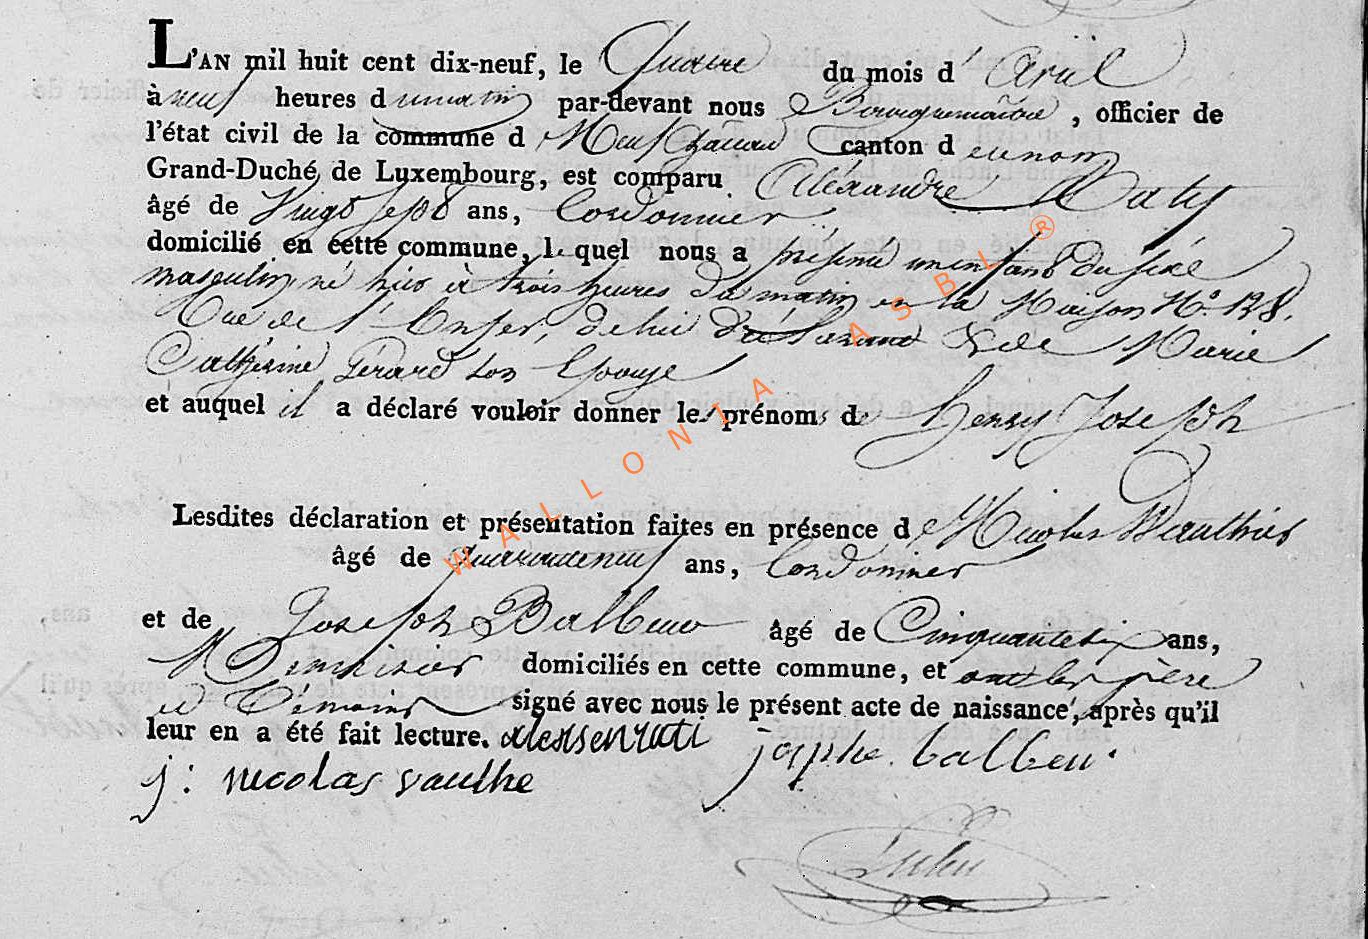 L'AN mil huit cent dix-neuf, le Quatre du mois d' Avril
à neuf heures du matin par-devant nous Bourguemaitre, officier de
l'état civil de la commune de Neufchateau canton du nom
Grand-Duché de Luxembourg, est comparu Alexandre Maty
âgé de Vingt Sept ans, Cordonnier
domicilié en cette commune, lequel nous a présenté un enfant du sexe
masculin né hier à trois heures du matin en la Maison No 128.
Rue de l'Enfer, de lui déclarant & de Marie
Catherine Gérard son Epouse
et auquel il a déclaré vouloir donner les prénoms de Henry Joseph
Lesdites déclaration et présentation faites en présence de Nicolas Wauthier
âgé de quarante neuf ans, Cordonnier
et de Joseph Balbeur âgé de Cinquante six ans,
Menuisier domiciliés en cette commune, et ont les père
et Temoins signé avec nous le présent acte de naissance, après qu'il
leur en a été fait lecture. josphe balbeur.
j: nicolas vauthe
WALLONIA ASBL ®